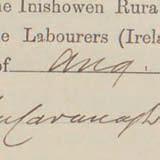 he Inishowen Rura
e Labourers (Irela
of Aug.
Cavanagh